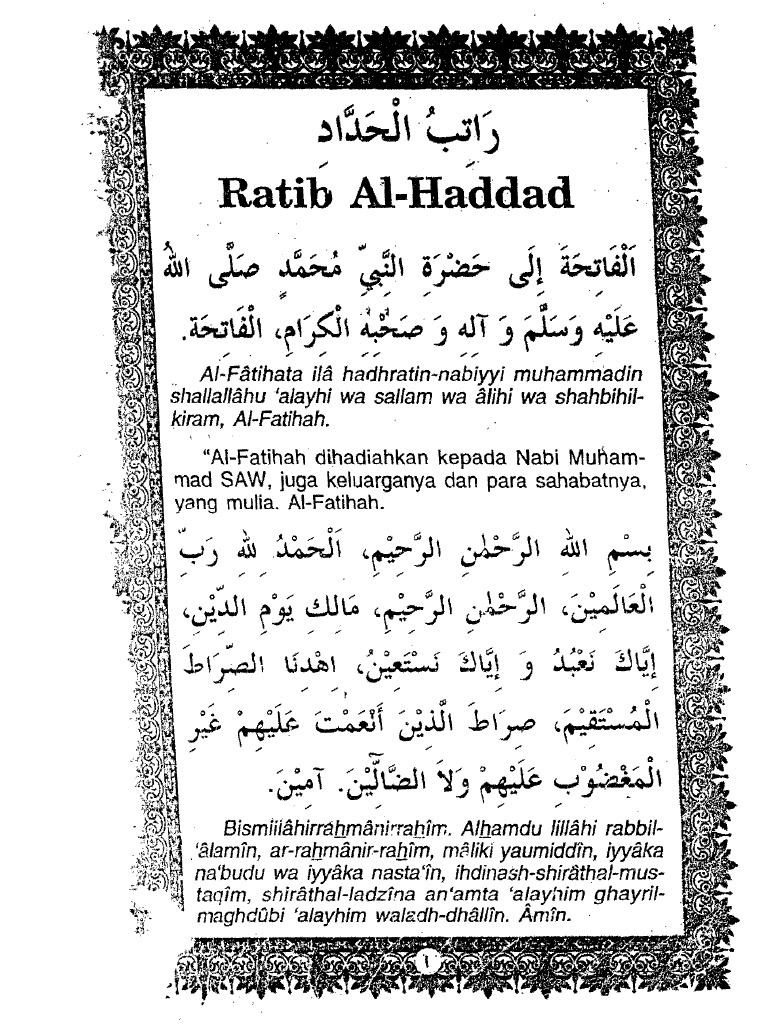 رَاتِبُ الْحَدَّادِ
Ratib Al-Haddad
اَلْفَاتِحَةَ إِلَى حَضْرَةِ النَّبِيِّ مُحَمَّدٍ صَلَّى اللهُ
عَلَيْهِ وَسَلَّمَ وَ آلِهِ وَ صَحْبِهِ الْكِرَامِ، الْفَاتِحَة.
Al-Fâtihata ilâ hadhratin-nabiyyi muhammadin
shallallâhu ‘alayhi wa sallam wa âlihi wa shahbihil-
kiram, Al-Fatihah.
“Al-Fatihah dihadiahkan kepada Nabi Muham-
mad SAW, juga keluarganya dan para sahabatnya,
yang mulia. Al-Fatihah.
بِسْمِ اللهِ الرَّحْمٰنِ الرَّحِيْمِ، اَلْحَمْدُ لِلهِ رَبِّ
الْعَالَمِيْنَ، الرَّحْمٰنِ الرَّحِيْمِ، مَالِكِ يَوْمِ الدِّيْنِ،
إِيَّاكَ نَعْبُدُ وَ إِيَّاكَ نَسْتَعِيْنُ، اِهْدِنَا الصِّرَاطَ
الْمُسْتَقِيْمَ، صِرَاطَ الَّذِيْنَ أَنْعَمْتَ عَلَيْهِمْ غَيْرِ
الْمَغْضُوْبِ عَلَيْهِمْ وَلاَ الضَّآلِّيْنَ. آمِيْنَ.
Bismillâhirrahmânirrahîm. Alhamdu lillâhi rabbil-
‘âlamîn, ar-rahmânir-rahîm, mâliki yaumiddîn, iyyâka
na‘budu wa iyyâka nasta‘în, ihdinash-shirâthal-mus-
taqîm, shirâthal-ladzîna an‘amta ‘alayhim ghayril-
maghdûbi ‘alayhim waladh-dhâllîn. Âmîn.
١